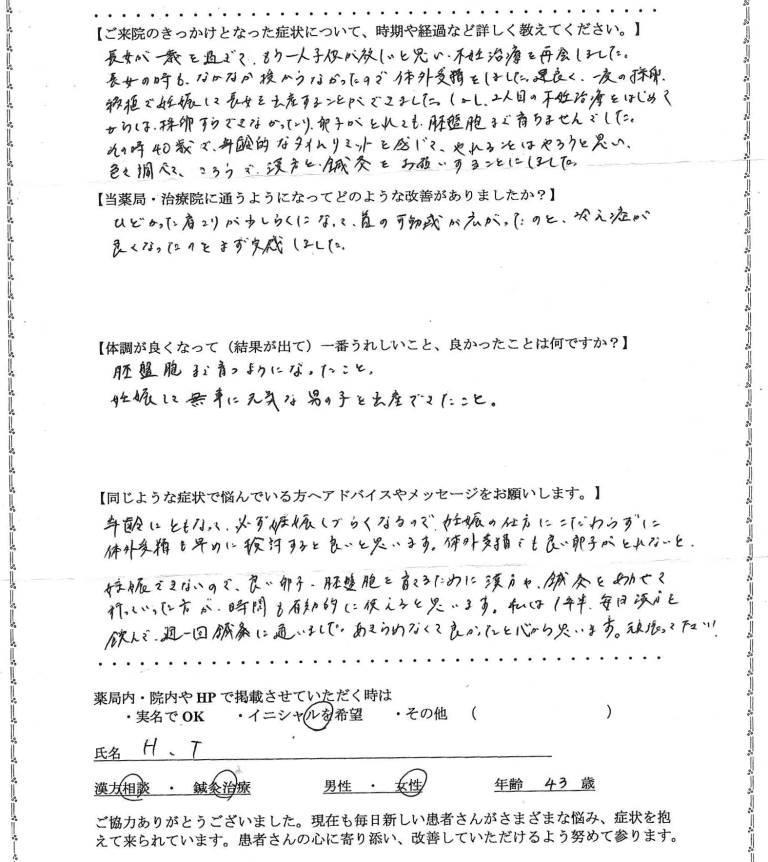 【ご来院のきっかけとなった症状について、時期や経過など詳しく教えてください。】
長女が一歳を過ぎて、もう一人子供が欲しいと思い、不妊治療を再会しました。
長女の時も、なかなか授からなかったので体外受精をしました。運良く、一度の採卵、
移植で妊娠して長女を出産することができました。しかし、2人目の不妊治療をはじめて
からは、採卵すらできなかったり、卵子がとれても、胚盤胞まで育ちませんでした。
その時40歳で、年齢的なタイムリミットを感じて、やれることはやろうと思い、
色々調べて、こちらで、漢方と鍼灸をお願いすることにしました。
【当薬局・治療院に通うようになってどのような改善がありましたか?】
ひどかった肩コリが少しらくになって、首の可動域が広がったのと、冷え症が
良くなったのをまず実感しました。
【体調が良くなって(結果が出て)一番うれしいこと、良かったことは何ですか?】
胚盤胞まで育つようになったこと。
妊娠して無事に元気な男の子を出産できたこと。
【同じような症状で悩んでいる方へアドバイスやメッセージをお願いします。】
年齢にともなって、必ず妊娠しづらくなるので、妊娠の仕方にこだわらずに
体外受精も早めに検討すると良いと思います。体外受精でも良い卵子がとれないと、
妊娠できないので、良い卵子、胚盤胞を育てるために漢方や、鍼灸をあわせて
行っていった方が、時間も有効的に使えると思います。私は1年半、毎日漢方を
飲んで、週一回鍼灸に通いました。あきらめなくて良かったと心から思います。頑張って下さい!
薬局内・院内やHPで掲載させていただく時は
・実名でOK ・イニシャルを希望 ・その他 ( )
氏名 H.T
漢方相談 ・ 鍼灸治療 男性 ・ 女性 年齢 43 歳
ご協力ありがとうございました。現在も毎日新しい患者さんがさまざまな悩み、症状を抱
えて来られています。患者さんの心に寄り添い、改善していただけるよう努めて参ります。